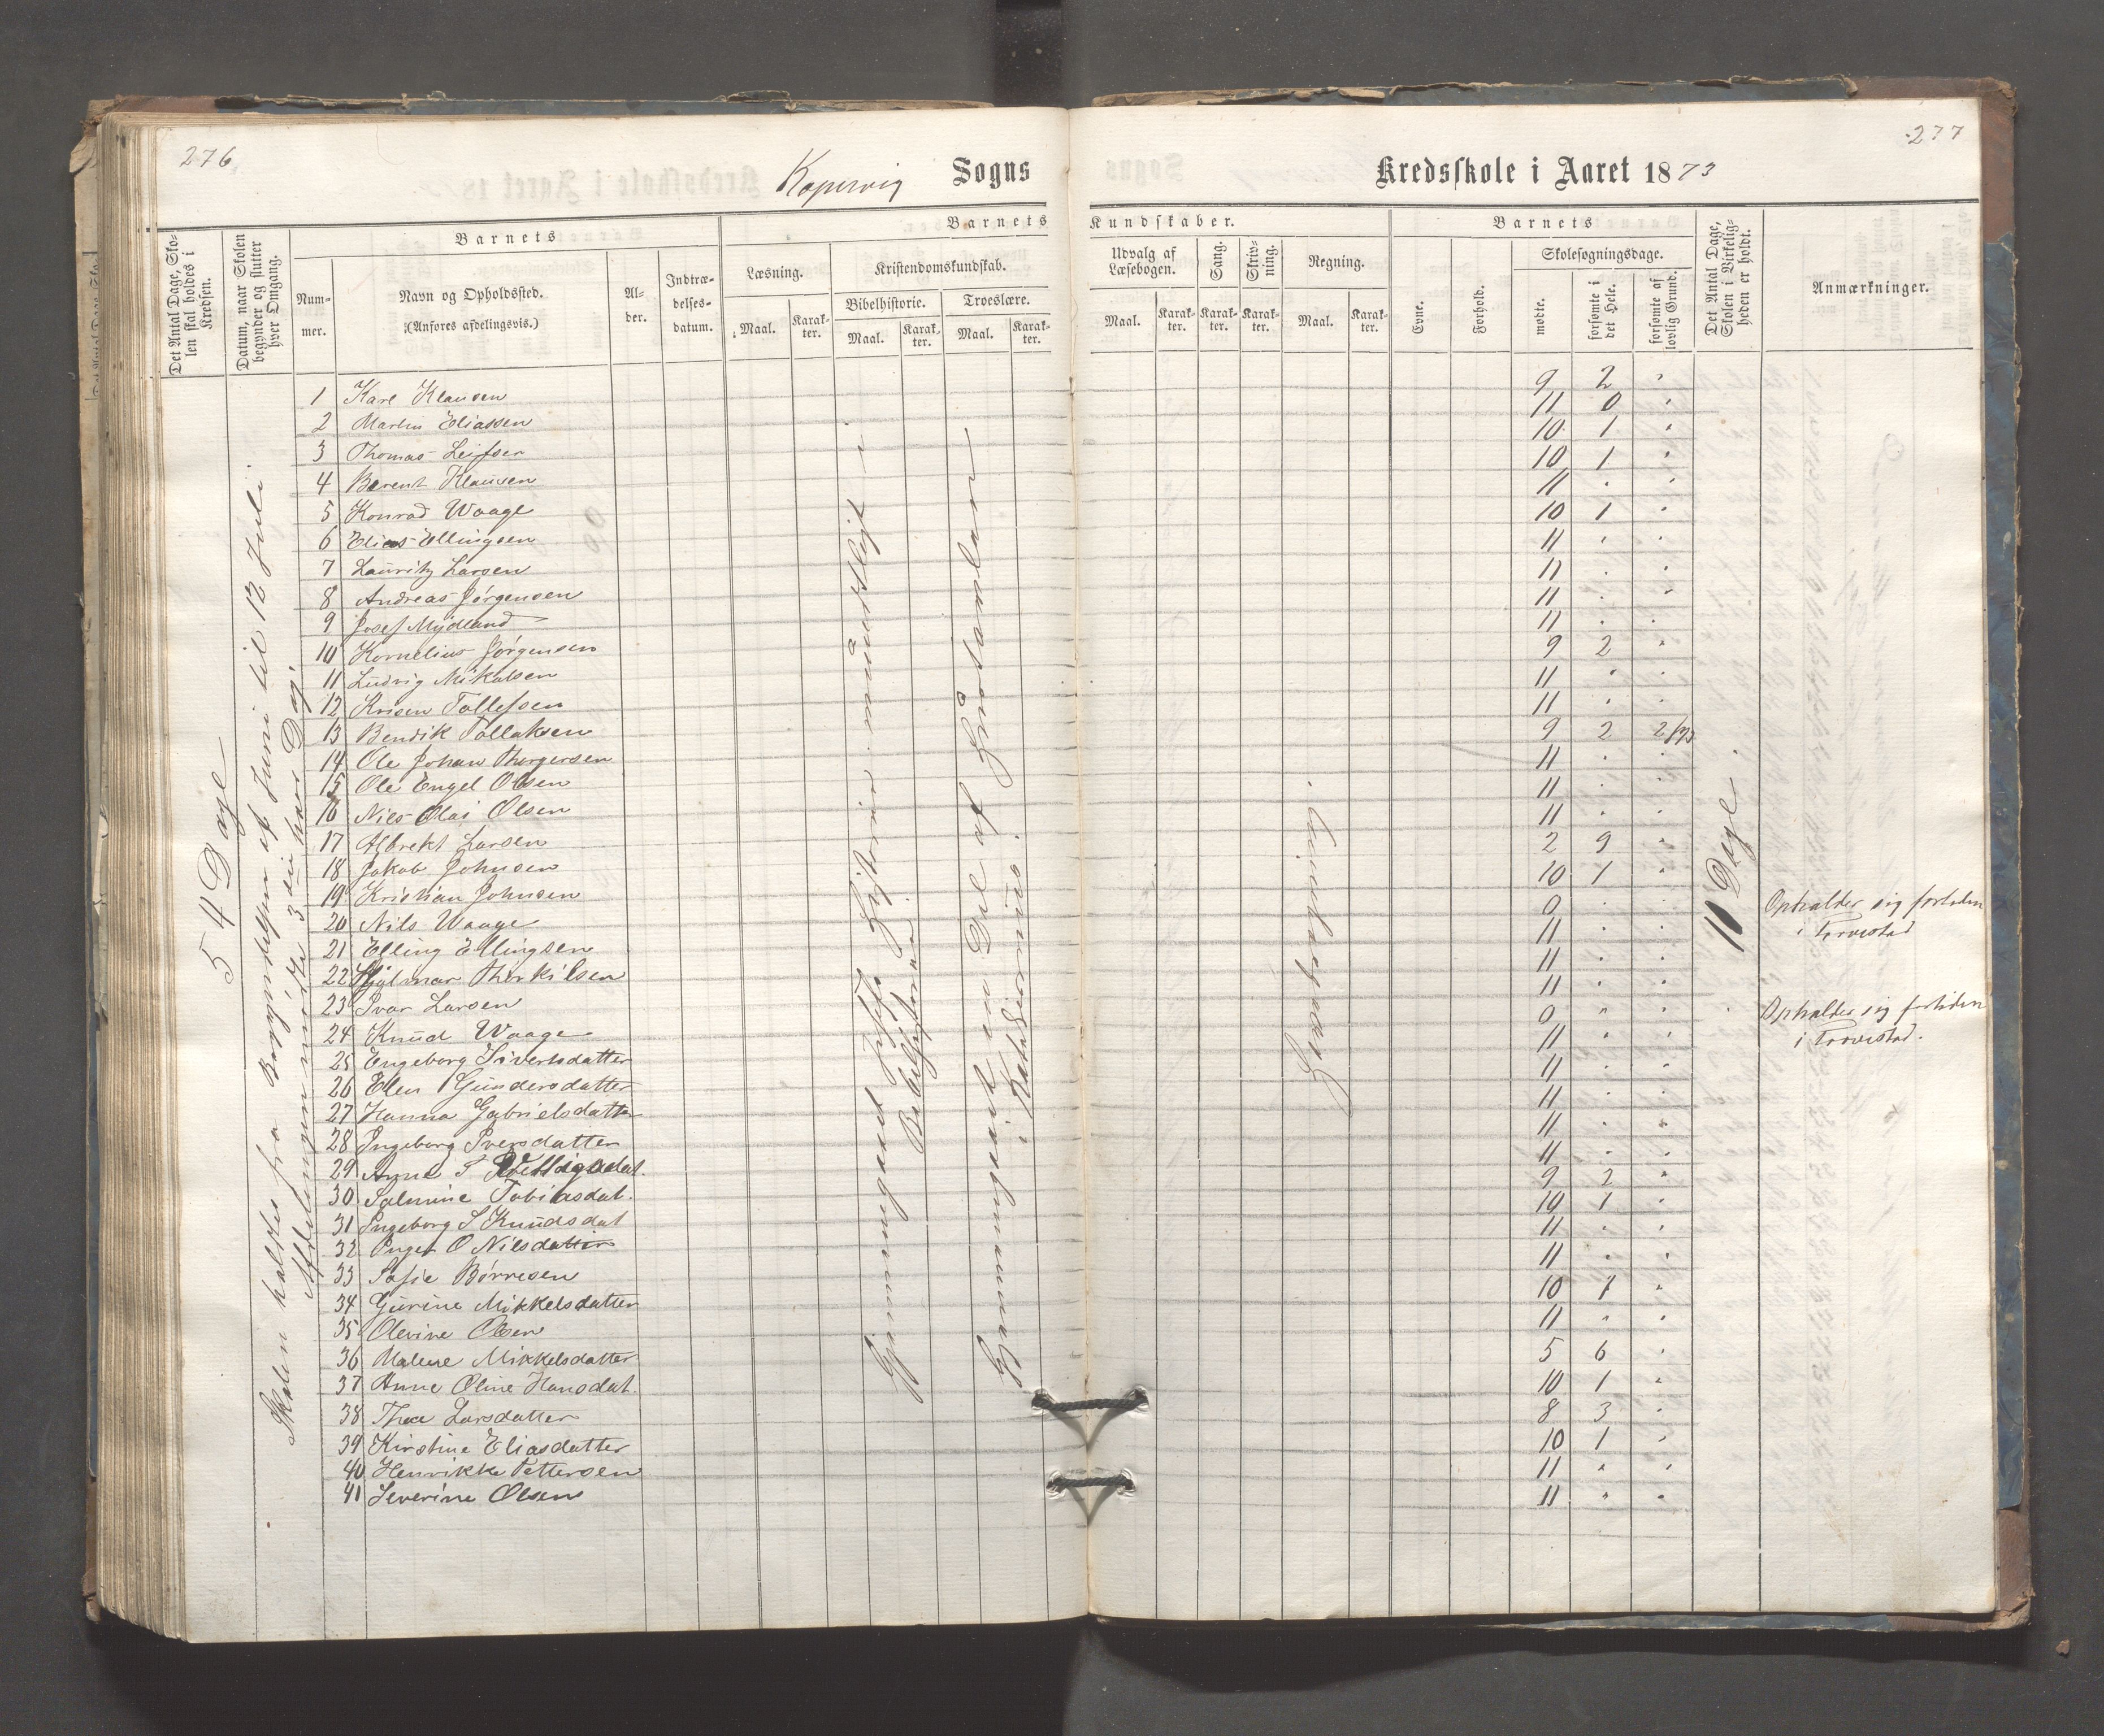 276
277
Kopervig Sogns Kredsskole i Aaret 1873
Det Antal Dage, Sko-
len skal holdes i
Kredsen.
Datum, naar Skolen
begynder og slutter
hver Omgang.
Barnets
Num-
mer.
Navn og Opholdssted.
(Anføres afdelingsvis.)
Al-
der.
Indtræ-
delses-
datum.
Barnets Kundskaber.
Læsning.
Maal.
Karak-
ter.
Kristendomskundskab.
Bibelhistorie.
Maal.
Karak-
ter.
Troeslære.
Maal.
Karak-
ter.
Udvalg af
Læsebogen.
Maal.
Karak-
ter.
Sang.
Karak-
ter.
Skriv-
ning.
Karak-
ter.
Regning.
Maal.
Karak-
ter.
Barnets
Evne.
Forhold.
Skolesøgningsdage.
mødte.
forsømte i
det Hele.
forsømte af
lovlig Grund.
Det Antal Dage,
Skolen i Virkelig-
heden er holdt.
Anmærkninger.
54 Dage
Skolen holdtes fra Begyndelsen af Juni til 12 Juli.
Afdelingen mødte 3die hver Dag.
1 Karl Klausen 9 2 "
2 Martin Eliassen 11 0 "
3 Thomas Leifsen 10 1 "
4 Berent Klausen 10 1 "
5 Konrad Waage 11 " "
6 Elias Ellingsen 10 1 "
7 Lauritz Larsen 11 " "
8 Andreas Jørgensen 11 " "
9 Josef Mydland 11 " "
10 Kornelius Jørgensen 11 " "
11 Ludvig Mikalsen 9 2 "
12 Krisen Tollefsen 11 " "
13 Bendik Tollaksen 11 " "
14 Ole Johan Thorgersen 9 2 2
15 Ole Engel Olsen 11 " "
16 Nils Olai Olsen 11 " "
17 Albrekt Larsen 11 " "
18 Jakob Johnsen 2 9 "
19 Kristian Johnsen 10 1 "
20 Nils Waage 0 " " Opholder sig fortiden
i Torvestad
21 Elling Ellingsen 11 " "
22 Hjalmar Thorkilsen 11 " "
23 Ivar Larsen 11 " "
24 Knud Waage 0 " " Opholder sig fortiden
i Torvestad.
25 Engeborg Sivertsdatter 11 " "
26 Elen Gundersdatter 11 " "
27 Hanna Gabrielsdatter 11 " "
28 Ingeborg Iversdatter 11 " "
29 Anne T 11 " "
30 Salmine Tobiasdat. 9 2 "
31 Ingeborg S Knudsdat 10 1 "
32 Inger O Nilsdatter 11 " "
33 Sofie Børresen 11 " "
34 Gurine Mikkelsdatter 10 1 "
35 Olevine Olsen 11 " "
36 Malene Mikkelsdatter 5 6 "
37 Anne Oline Hansdat. 10 1 "
38 Thea Larsdatter 8 3 "
39 Kirstine Eliasdatter 10 1 "
40 Henrikke Pettersen 11 " "
41 Severine Olsen 11 " "
Gjennemgaaet Josefs Historie mundtligt i
Bibelhistorien.
Gjennemgaaet en Del af Smaatavlen
i Katekismus.
11 Dage.